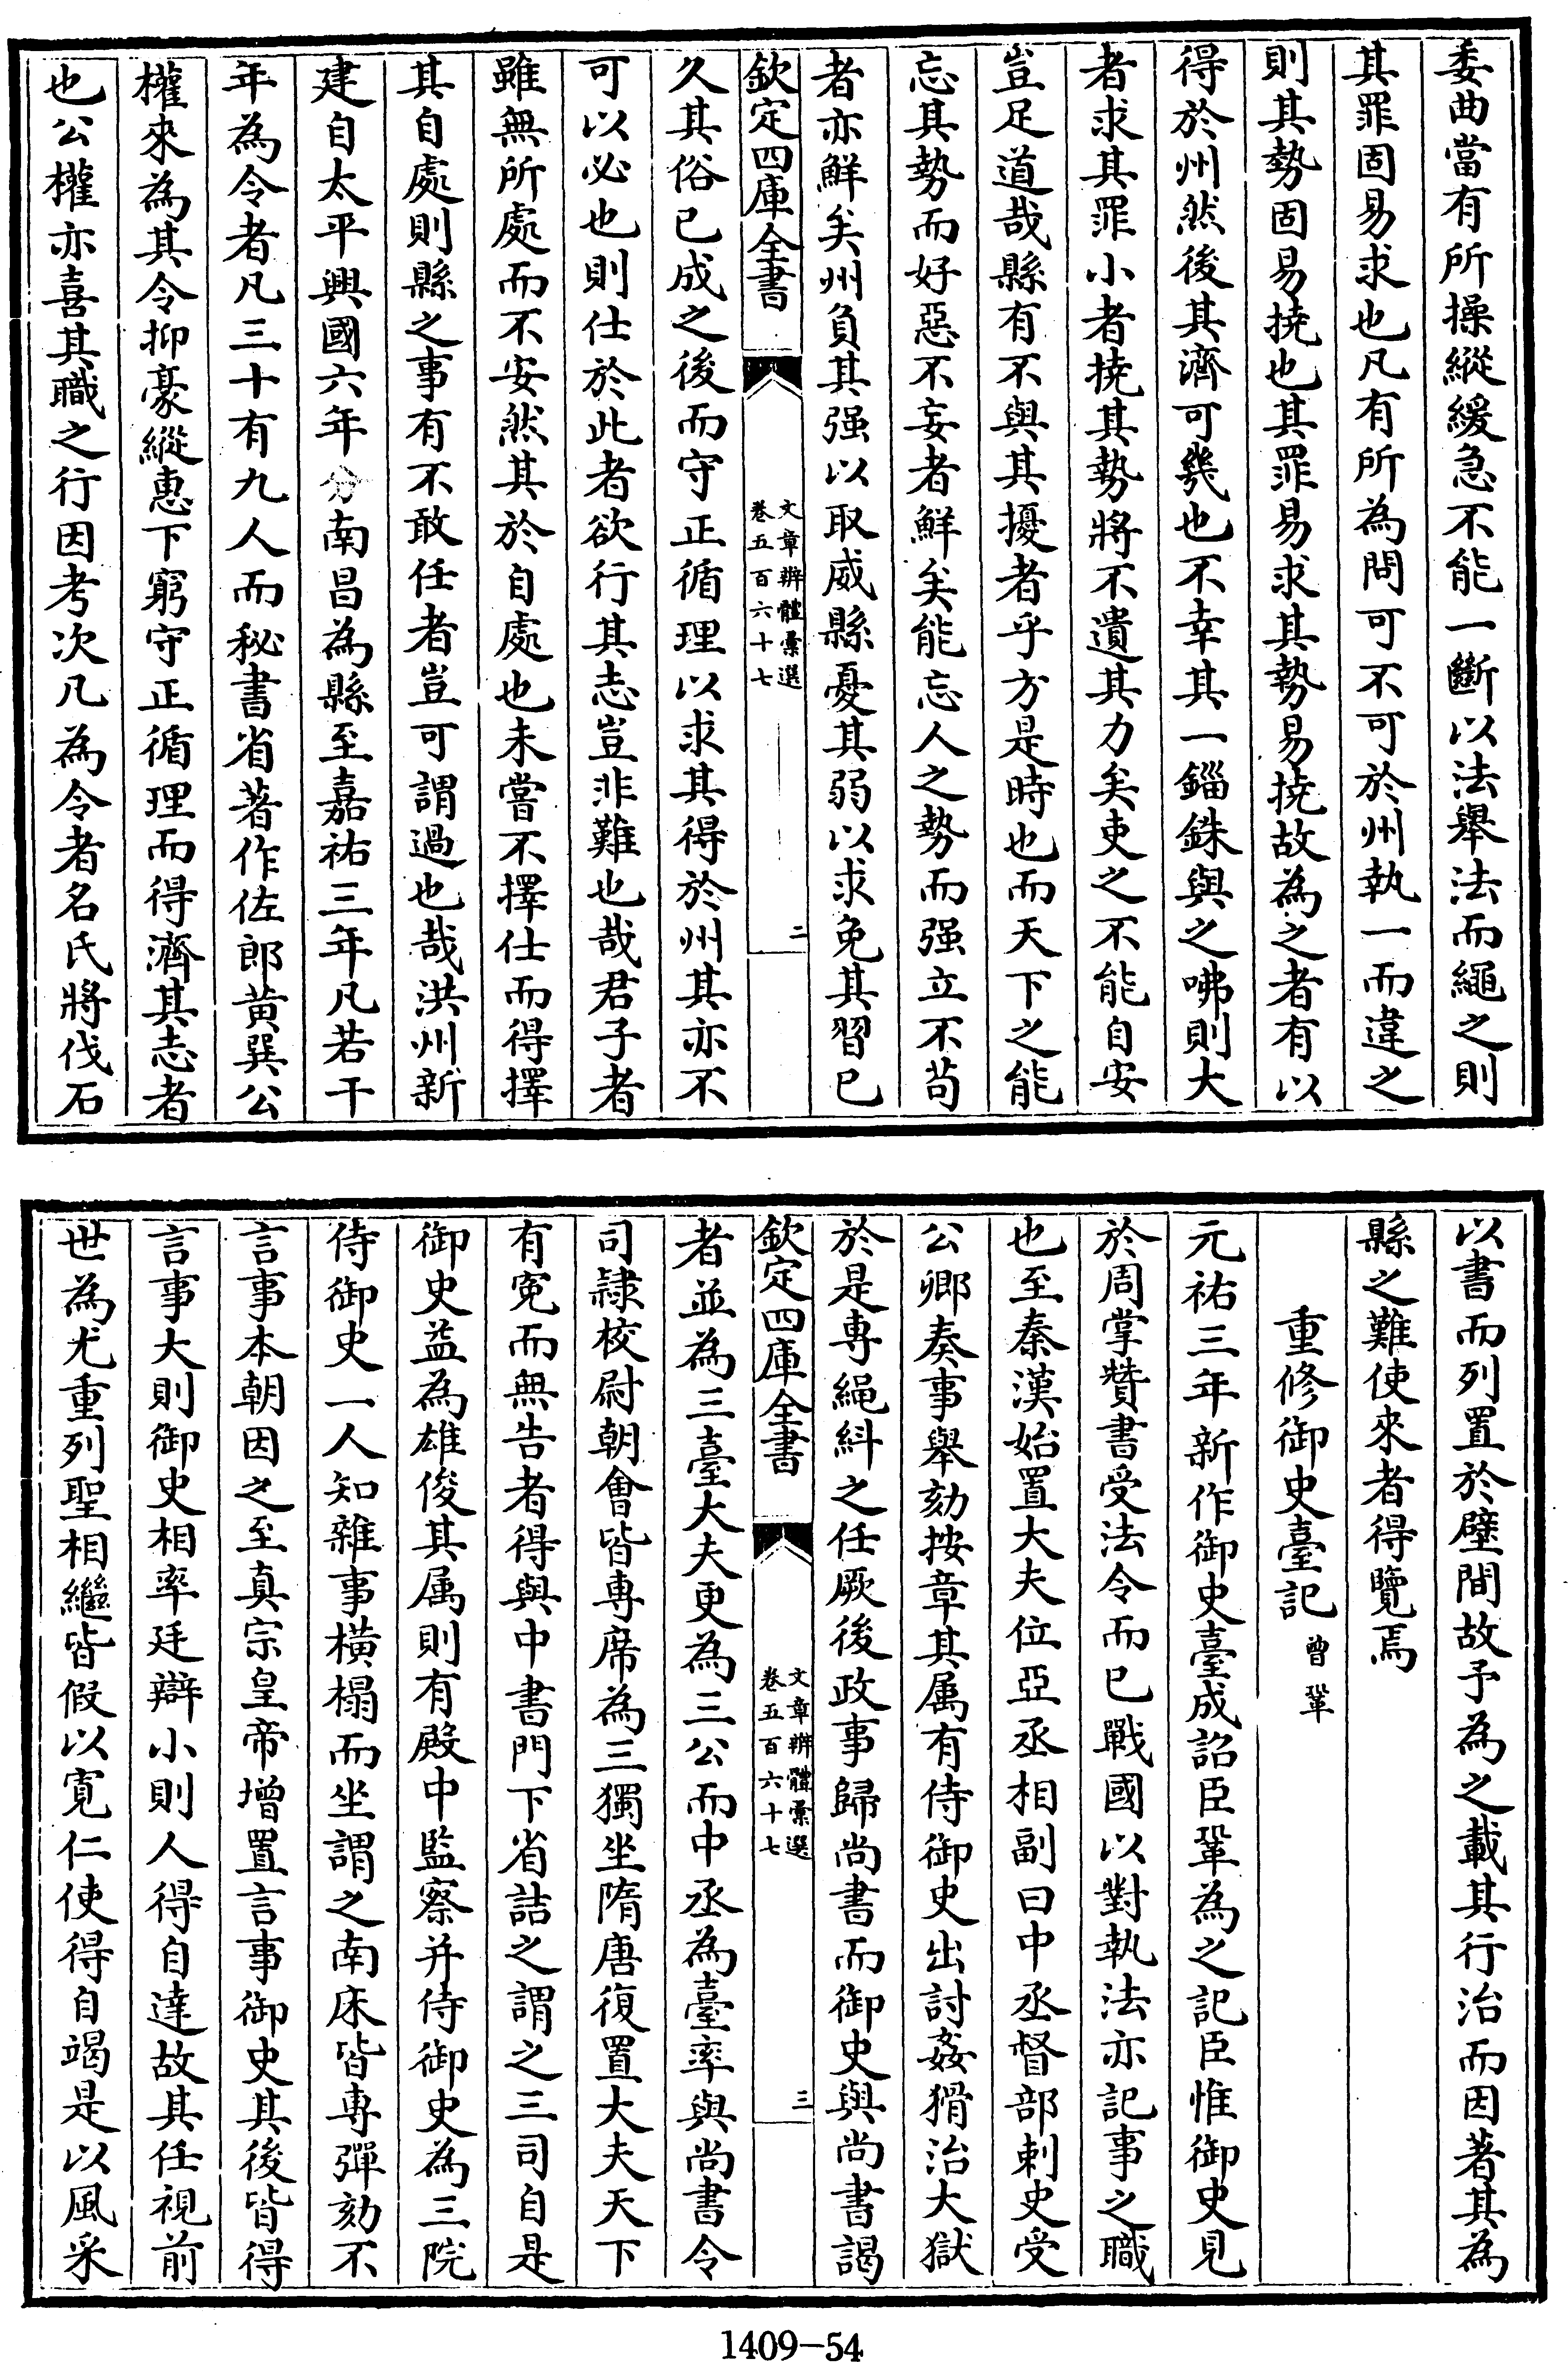 委曲當有所操縱緩急不能一斷以法舉法而繩之則
其罪固易求也凡有所為問可不可於州執一而違之
則其勢固易撓也其罪易求其勢易撓故為之者有以
得於州然後其濟可幾也不幸其一錙銖與之咈則大
者求其罪小者撓其勢將不遺其力矣吏之不能自安
豈足道哉縣有不與其擾者乎方是時也而天下之能
忘其勢而好惡不妄者鮮矣能忘人之勢而强立不苟
者亦鮮矣州負其强以取威縣憂其弱以求免其習已
欽定四庫全書
文章辨體彙選
卷五百六十七
二
久其俗已成之後而守正循理以求其得於州其亦不
可以必也則仕於此者欲行其志豈非難也哉君子者
雖無所處而不安然其於自處也未嘗不擇仕而得擇
其自處則縣之事有不敢任者豈可謂過也哉洪州新
建自太平興國六年分南昌為縣至嘉祐三年凡若干
年為令者凡三十有九人而秘書省著作佐郎黄巽公
權來為其令抑豪縱惠下窮守正循理而得濟其志者
也公權亦喜其職之行因考次凡為令者名氏將伐石
以書而列置於壁間故予為之載其行治而因著其為
縣之難使來者得覽焉
重修御史臺記 曾鞏
元祐三年新作御史臺成詔臣鞏為之記臣惟御史見
於周掌贊書受法令而已戰國以對執法亦記事之職
也至秦漢始置大夫位亞丞相副曰中丞督部刺史受
公卿奏事舉劾按章其属有侍御史出討姦猾治大獄
於是専繩糾之任厥後政事歸尚書而御史與尚書謁
欽定四庫全書
文章辨體彙選
卷五百六十七
三
者並為三臺大夫更為三公而中丞為臺率與尚書令
司隸校尉朝會皆専席為三獨坐隋唐復置大夫天下
有寃而無告者得與中書門下省詰之謂之三司自是
御史益為雄俊其属則有殿中監察并侍御史為三院
侍御史一人知雜事横榻而坐謂之南床皆専彈劾不
言事本朝因之至真宗皇帝增置言事御史其後皆得
言事大則御史相率廷辯小則人得自達故其任視前
世為尤重列聖相繼皆假以寛仁使得自竭是以風采
1409-54